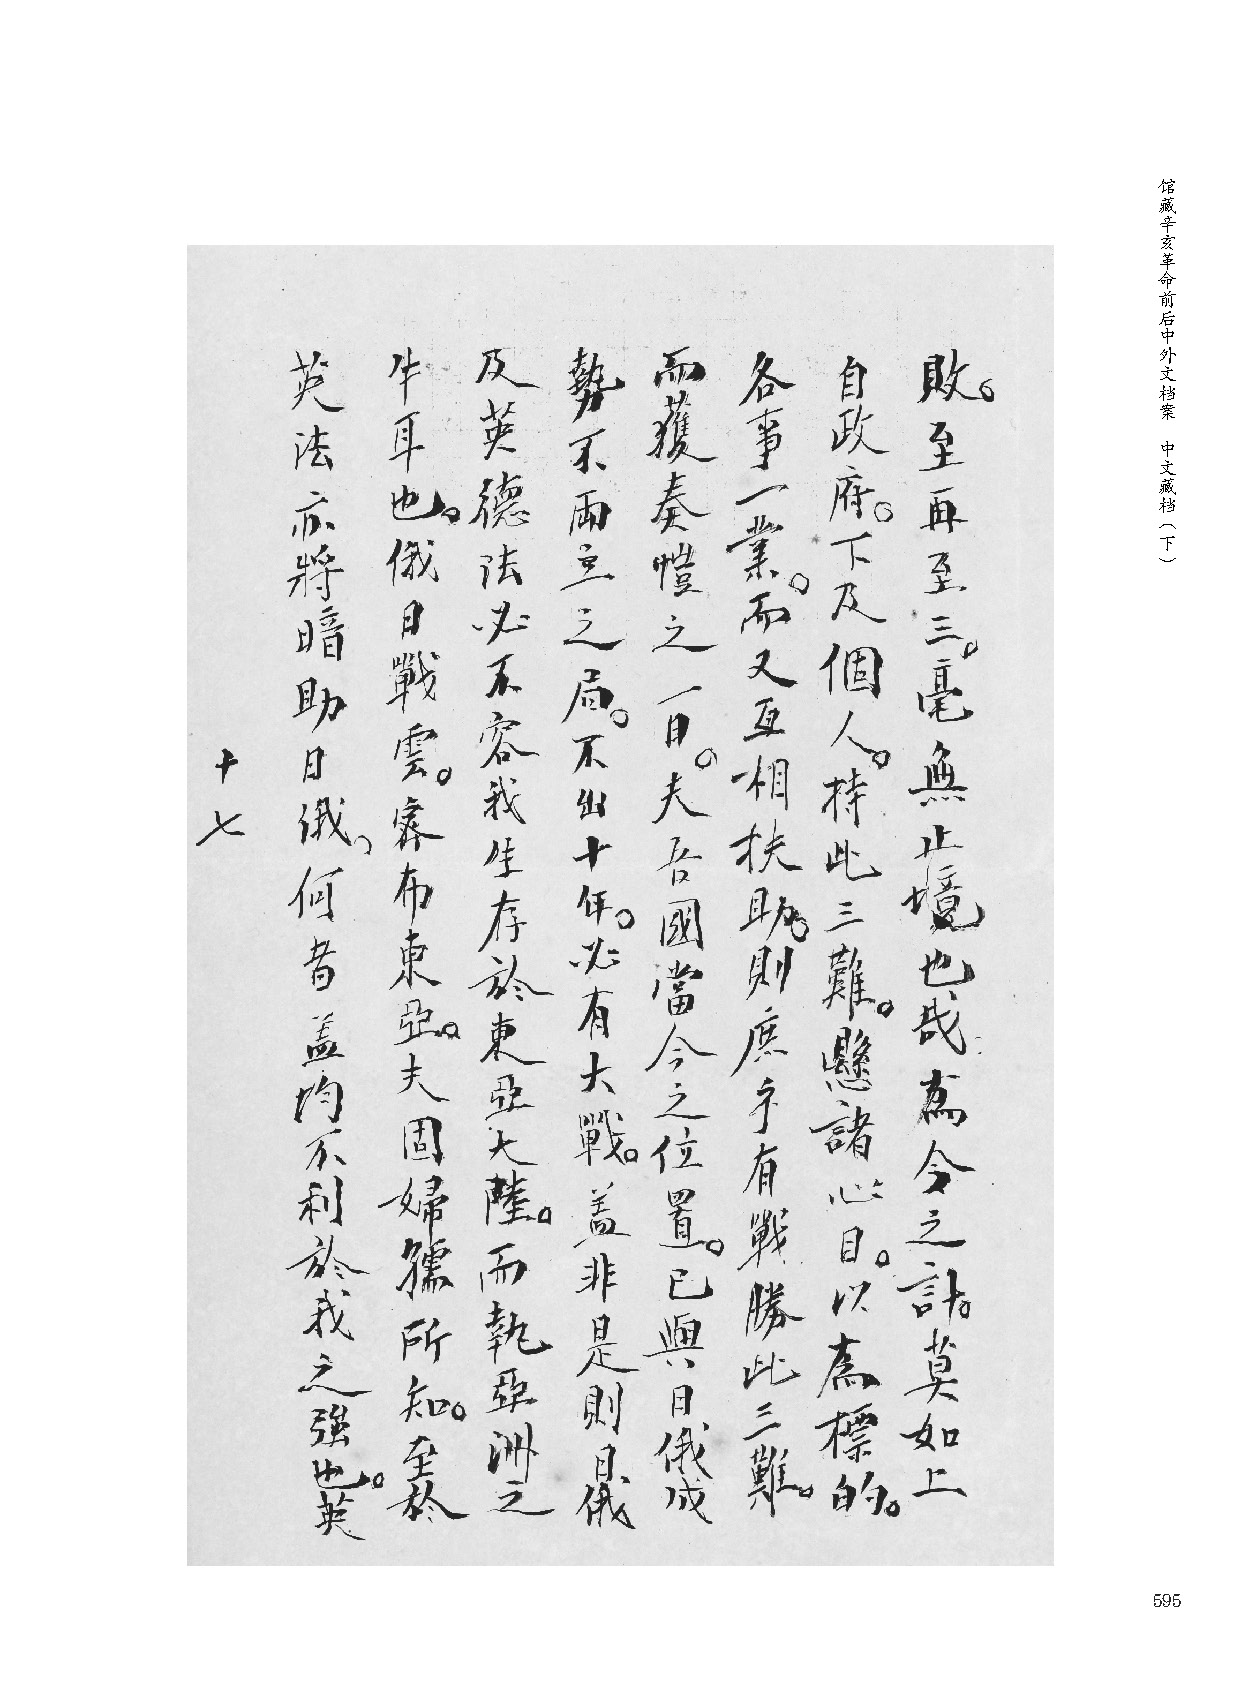 馆藏辛亥革命前后中外文档案　中文藏档（下）
敗。至再至三。毫無止境也哉為今之計。莫如上
自政府。下及個人。持此三難。懸諸心目。以為標的。
各事一業。而又互相扶助。則庶乎有戰勝此三難。
而獲奏愷之一日。夫吾國當今之位置。已與日俄成
勢不兩立之局。不出十年。必有大戰。盖非是則日俄
及英德法必不容我生存於東亞大陸。而執亞洲之
牛耳也。俄日戰雲。密布東亞。夫固婦孺所知。至於
英法亦將暗助日俄，何者盖均不利於我之強也。英
十七
595